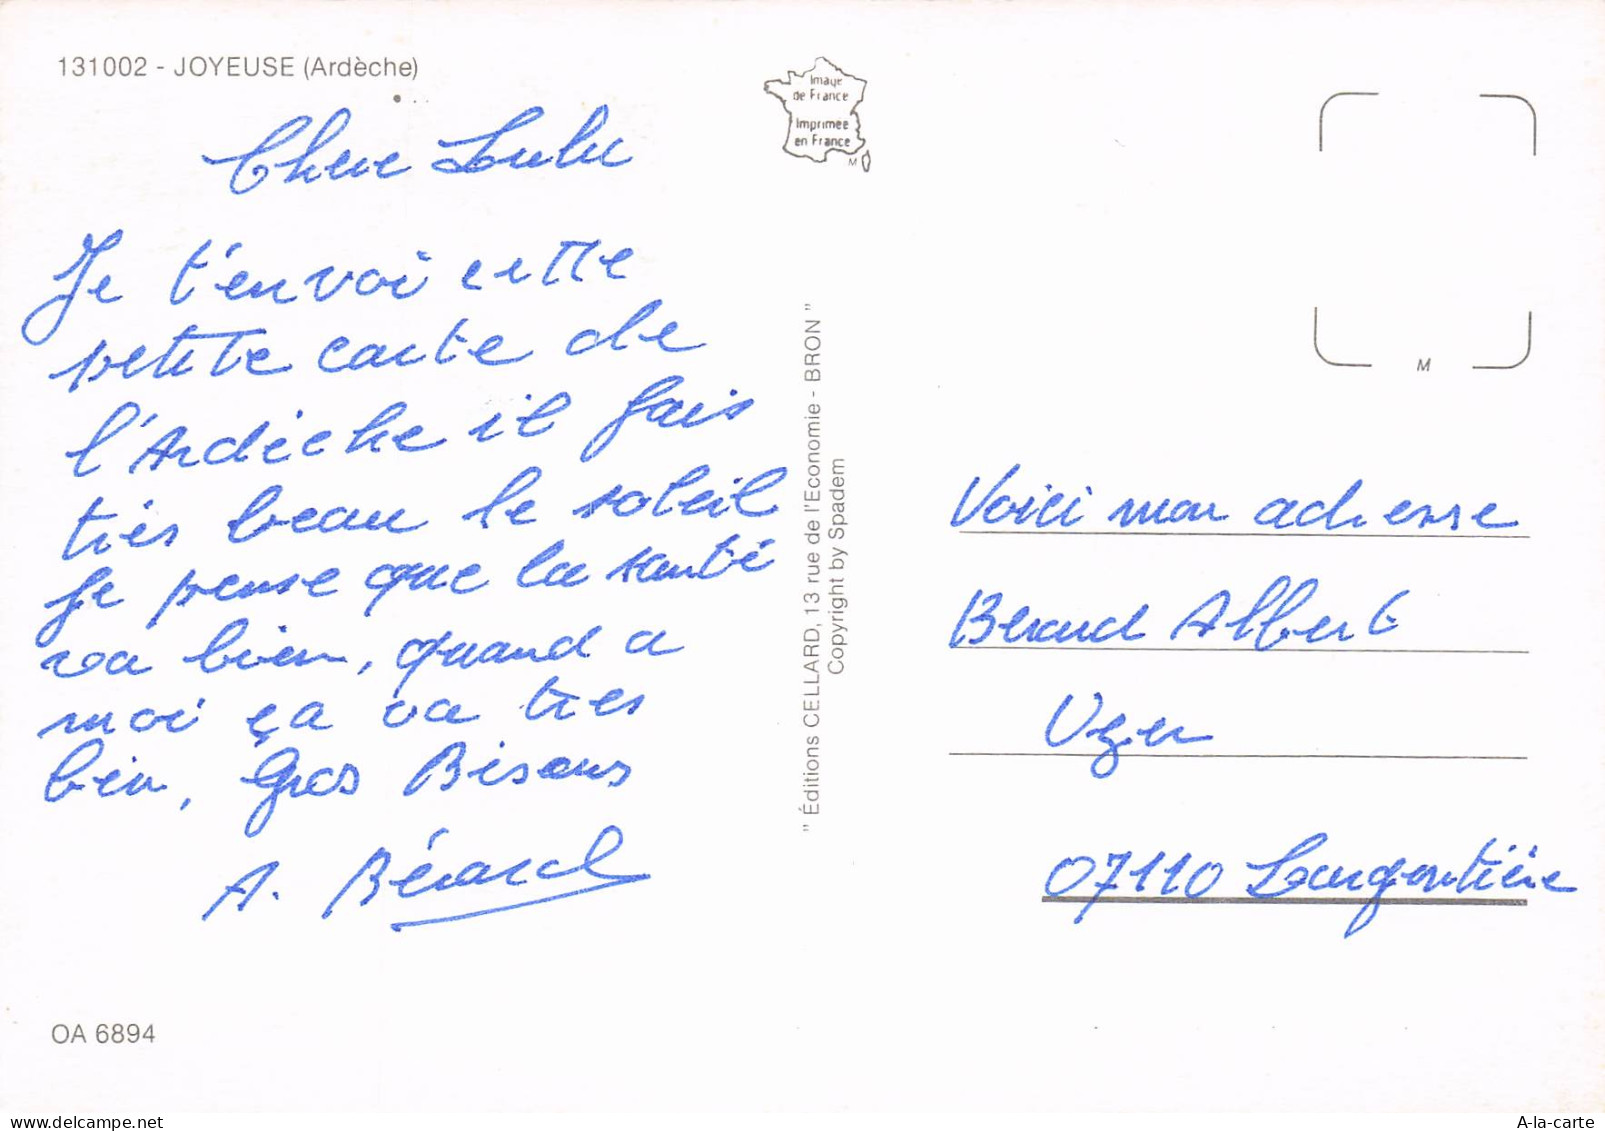 131002 - JOYEUSE (Ardèche)
Image
de France
Imprimée
en France
M
Chere Lulu
Je t'envoi cette
petite carte de
l'Ardèche il fais
très beau le soleil
Je pense que la santé
va bien, quand a
moi ça va tres
bien, Gros Bisous
A. Bérard
OA 6894
" Éditions CELLARD, 13 rue de l'Economie - BRON "
Copyright by Spadem
M
Voici mon adresse
Berard Albert
Uzer
07110 Largentière
A-la-carte